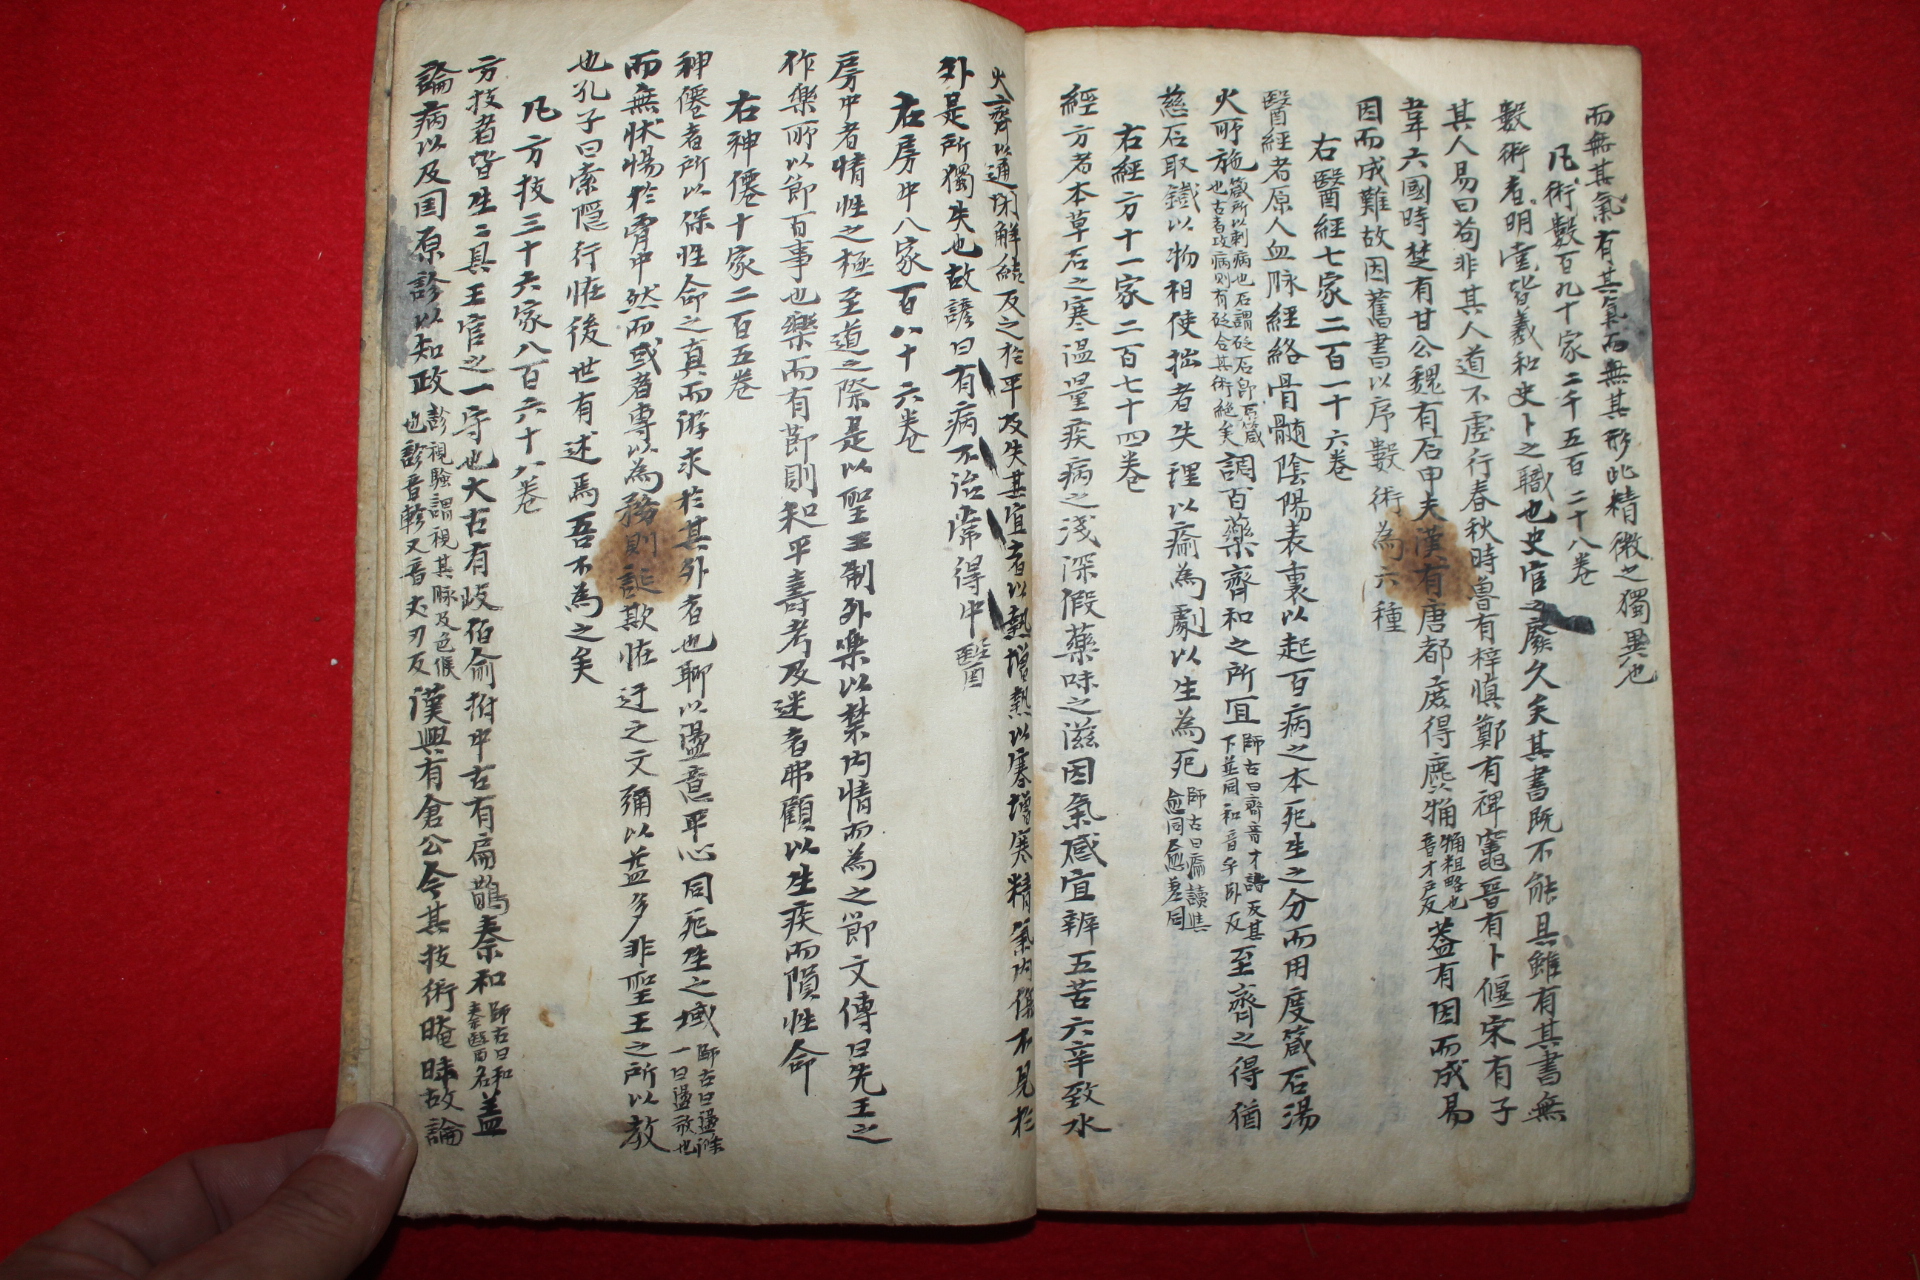 而無其氣有其氣而無其形此精微之獨異也
凡術數百九十家二千五百二十八卷
數術者明堂皆羲和史卜之職也史官之廢久矣其書既不能具雖有其書無
其人易曰苟非其人道不虛行春秋時魯有梓慎鄭有裨竈晉有卜偃宋有子
韋六國時楚有甘公魏有石申夫漢有唐都庶得麄觕觕粗略也音才戶反蓋有因而成易
因而成難故因舊書以序數術為六種
右醫經七家二百一十六卷
醫經者原人血脉經絡骨髓陰陽表裏以起百病之本死生之分而用度箴石湯
火所施箴所以刺病也石謂砭石即石箴也古者攻病則有砭今其術絕矣調百藥齊和之所宜師古曰齊音才詣反其下並同和音乎卧反至齊之得猶
慈石取鐵以物相使拙者失理以瘉為劇以生為死師古曰瘉讀與愈同愈差同
右經方十一家二百七十四卷
經方者本草石之寒溫量疾病之淺深假藥味之滋因氣感宜辨五苦六辛致水
火齊以通閉解結反之於平及失其宜者以熱增熱以寒增寒精氣內傷不見於
外是所獨失也故諺曰有病不治常得中醫
右房中八家百八十六卷
房中者情性之極至道之際是以聖王制外樂以禁內情而為之節文傳曰先王之
作樂所以節百事也樂而有節則和平壽考及迷者弗顧以生疾而隕性命
右神僊十家二百五卷
神僊者所以保性命之真而游求於其外者也聊以盪意平心同死生之域師古曰盪滌一曰盪放也
而無怵惕於胷中然而或者專以為務則誕欺恠迂之文彌以益多非聖王之所以教
也孔子曰索隱行恠後世有述焉吾不為之矣
凡方技三十六家八百六十八卷
方技者皆生生具王官之一守也大古有歧伯俞拊中古有扁鵲秦和師古曰和秦醫名蓋
論病以及国原診以知政診視驗謂視其脉及色候也診音軫又音丈刃反漢興有倉公今其技術晻昧故論